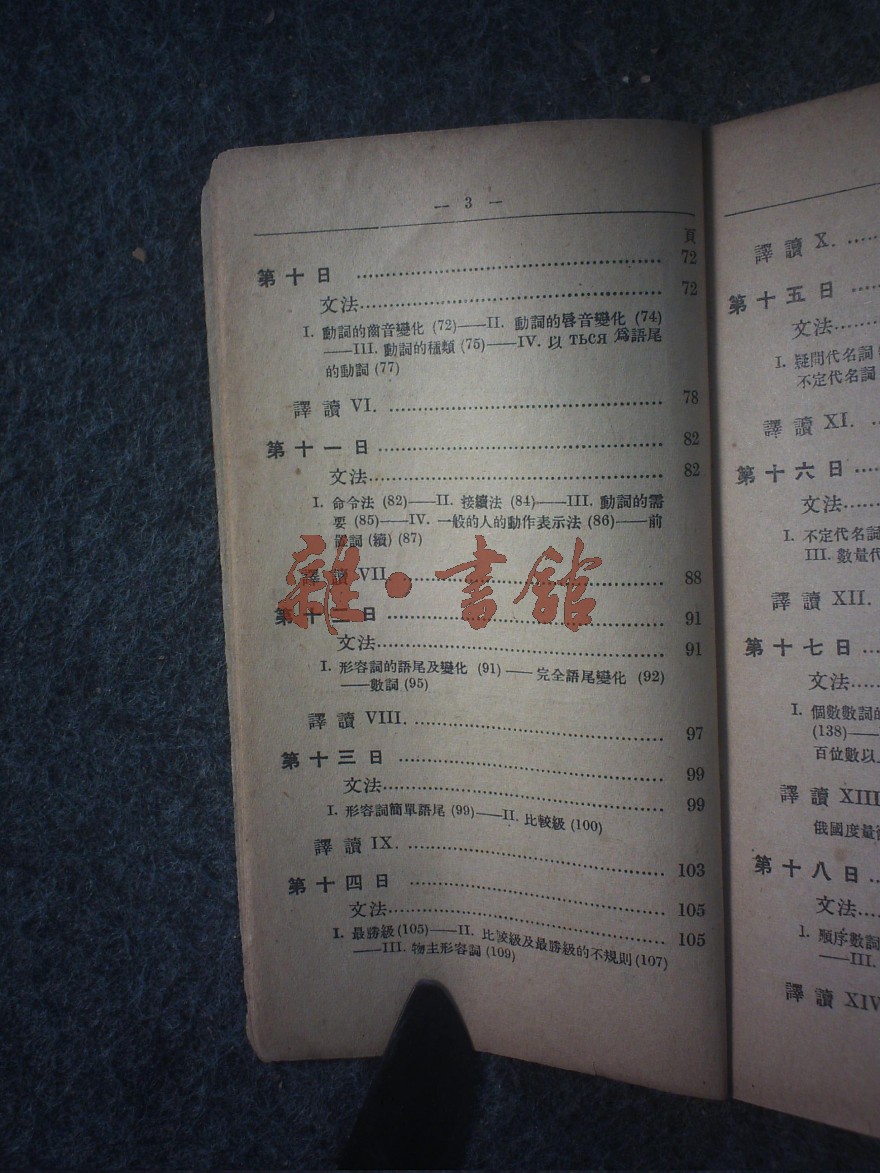 — 3 —
頁
第十日 ……… 72
文法 ……… 72
I. 動詞的齒音變化 (72)——II. 動詞的唇音變化 (74)
——III. 動詞的種類 (75)——IV. 以 ТЬСЯ 爲語尾
的動詞 (77)
譯讀 VI. ……… 78
第十一日 ……… 82
文法 ……… 82
I. 命令法 (82)——II. 接續法 (84)——III. 動詞的需
要 (85)——IV. 一般的人的動作表示法 (86)——前
置詞 (續) (87)
譯讀 VII. ……… 88
第十二日 ……… 91
文法 ……… 91
I. 形容詞的語尾及變化 (91)——完全語尾變化 (92)
——數詞 (95)
譯讀 VIII. ……… 97
第十三日 ……… 99
文法 ……… 99
I. 形容詞簡單語尾 (99)——II. 比較級 (100)
譯讀 IX. ……… 103
第十四日 ……… 105
文法 ……… 105
I. 最勝級 (105)——II. 比較級及最勝級的不規則 (107)
——III. 物主形容詞 (109)
雜·書館
譯讀 X. ……
第十五日 ……
文法 ……
I. 疑問代名詞
不定代名詞
譯讀 XI. ……
第十六日 ……
文法 ……
I. 不定代名詞
III. 數量代
譯讀 XII.
第十七日 ……
文法 ……
I. 個數數詞
(138)——
百位數以
譯讀 XIII
俄國度量
第十八日 ……
文法 ……
I. 順序數詞
——III.
譯讀 XIV